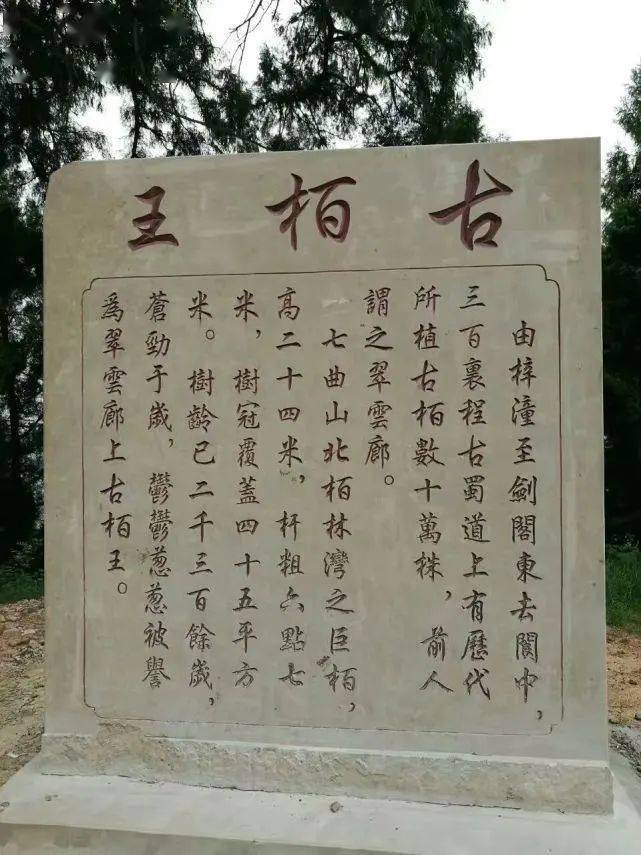 古柏王
由梓潼至劍閣東去閬中，
三百裏程古蜀道上有歷代
所植古柏數十萬株，前人
謂之翠雲廊。
七曲山北柏林灣之巨柏，
高二十四米，杆粗六點七
米，樹冠覆蓋四十五平方
米。樹齡已二千三百餘歲，
蒼勁于歲，鬱鬱葱葱被譽
爲翠雲廊上古柏王。